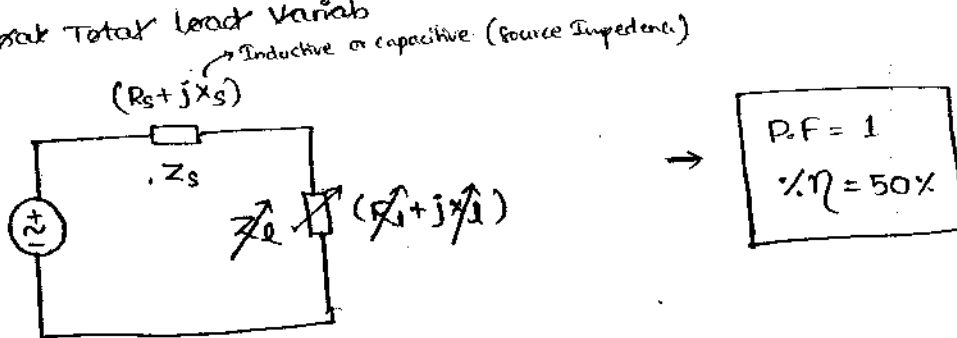 Total Load Variab
Inductive or capacitive (Source Impedence)
(Rs + jxs)
Zs
Zl (Rl + jxl)
P.F = 1
%η = 50%